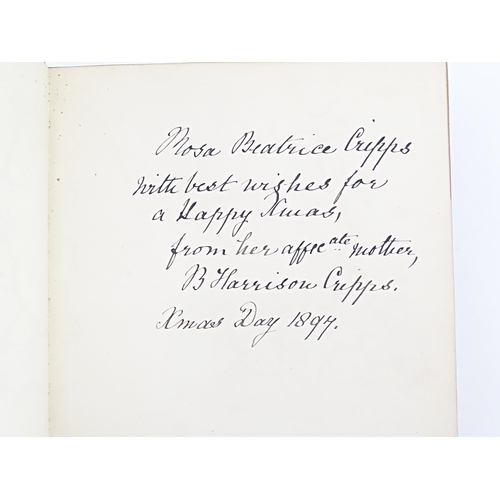 Rosa Beatrice Cripps
With best wishes for
a Happy Xmas,
from her affec^ate mother,
B Harrison Cripps.
Xmas Day 1897.